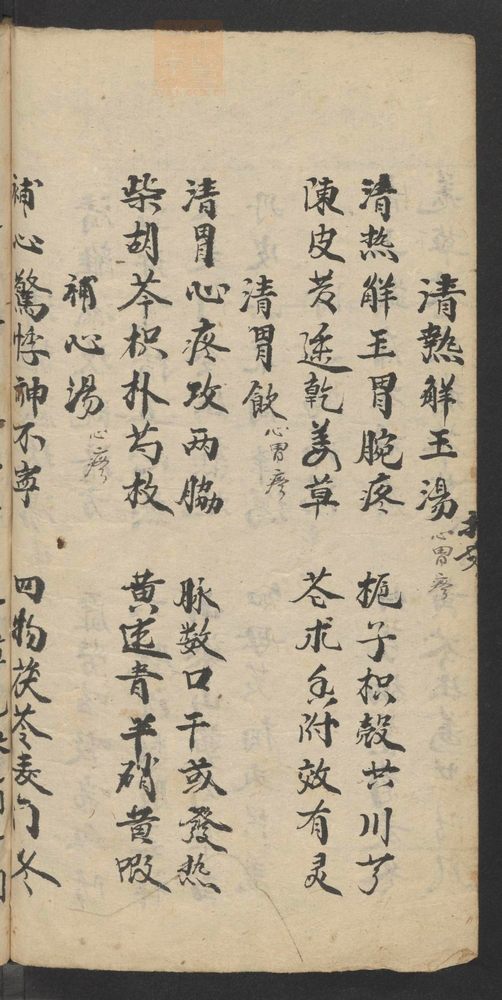 清熱解玉湯 心胃疼
清热解玉胃腕疼 梔子枳殼共川芎
陳皮黃連乾姜草 苍术香附效有灵
清胃飲 心胃疼
清胃心疼攻两脇 脉数口干或發热
柴胡芩枳朴芍枝 黄連青半硝黄
補心湯 心疼
補心驚悸神不寧 四物茯苓麦门冬